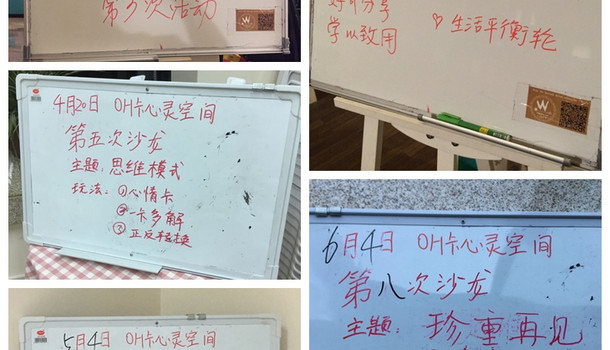 第3次活动
学以致用
♡生活平衡轮
W
4月20日 OH卡心灵空间
第五次沙龙
主题：思维模式
玩法：①心情卡
②一卡多解
③正反转换
6月4日 OH卡心灵空间
第八次沙龙
主题：珍重再见
5月4日 OH卡心灵空间